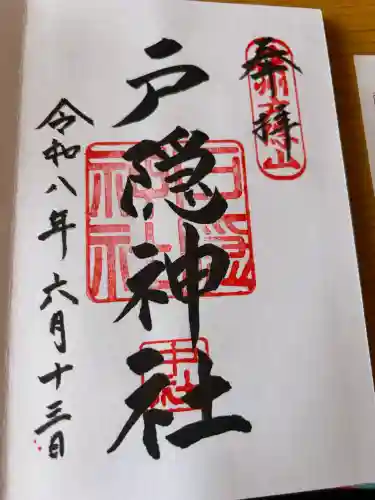 奉拝
戸隠神社
令和八年六月十三日
戸隠神社
中社